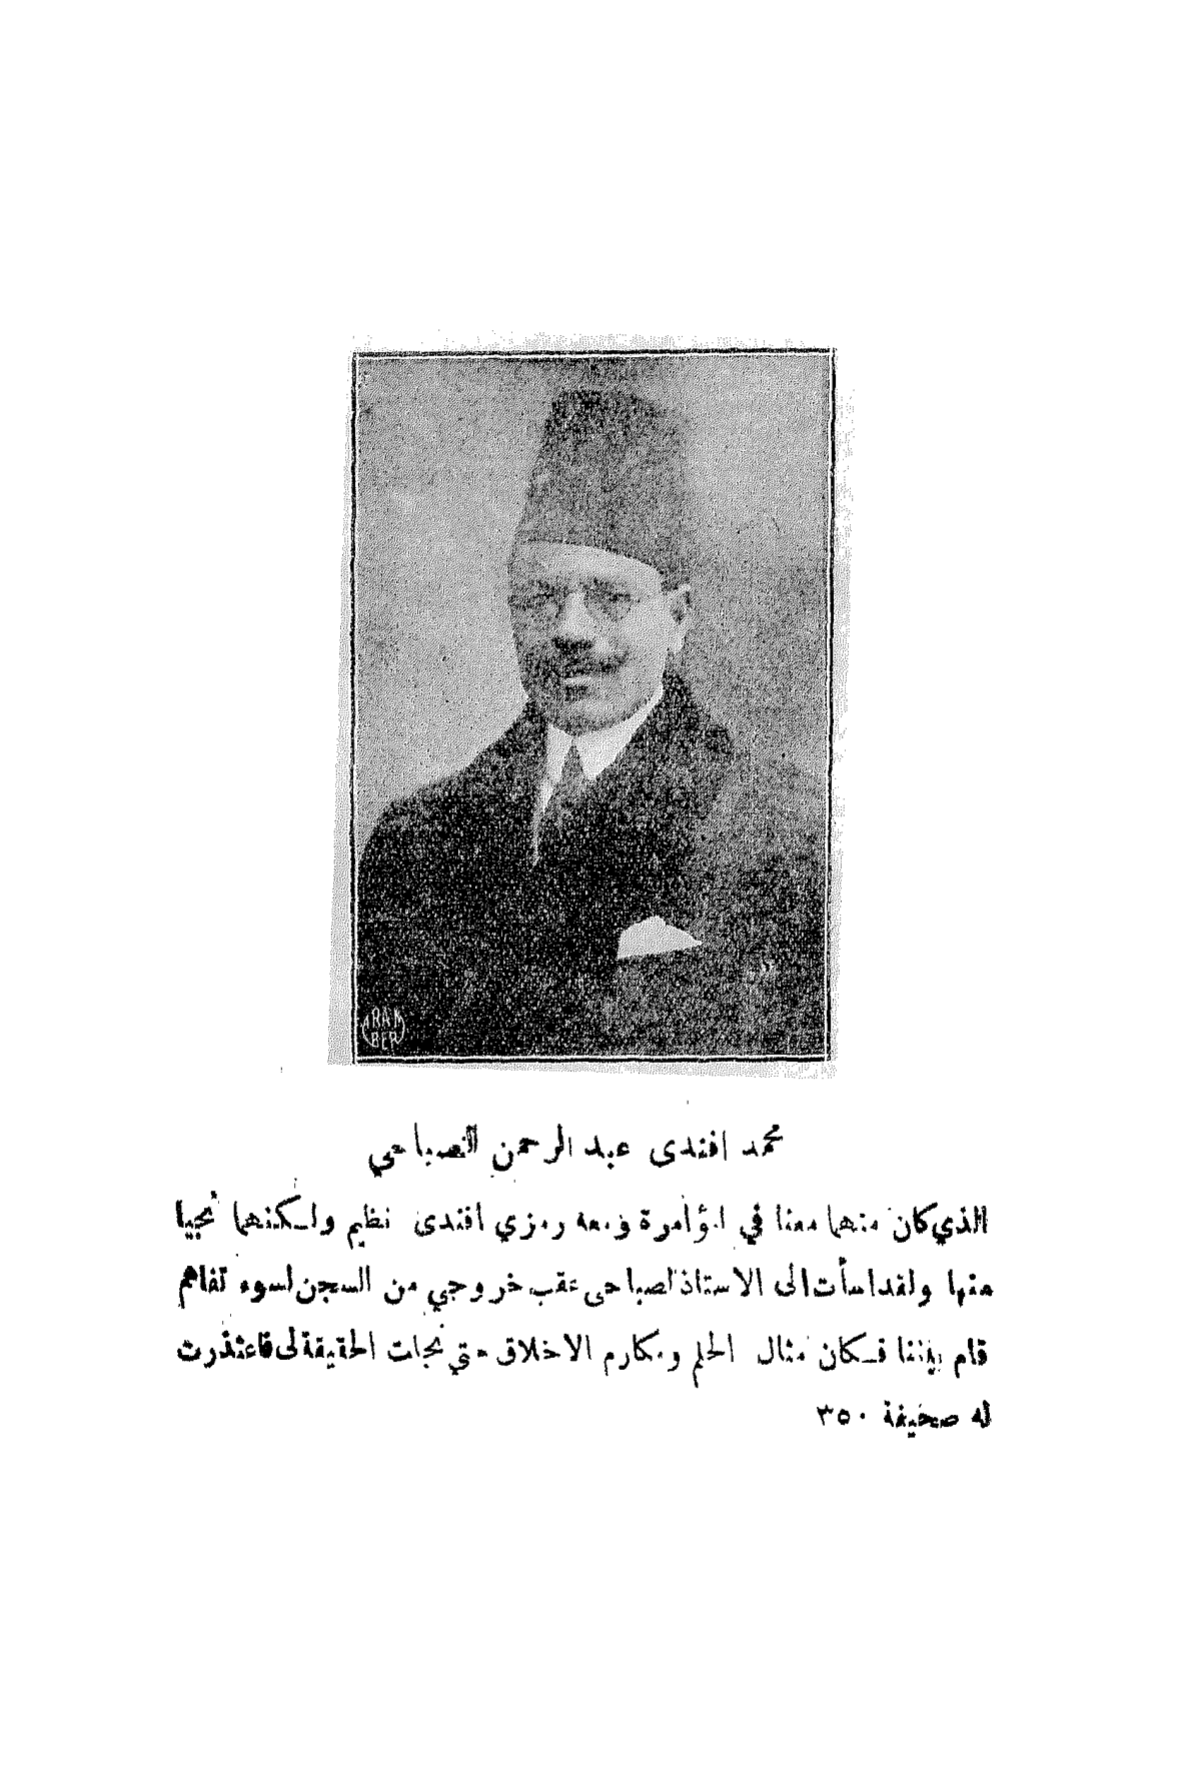 ARAK
BER
محمد افندى عبد الرحمن الصباحي
الذي كان متهما معنا في المؤامرة ومعه رمزي افندى نظيم ولـكنهما نجيا
منها ولقد اسأت الى الاستاذ الصباحى عقب خروجي من السجن لسوء تفاهم
قام بيننا فـكان مثال الحلم ومكارم الاخلاق حتي تجلت الحقيقة لى فاعتذرت
له صحيفة ٣٥٠